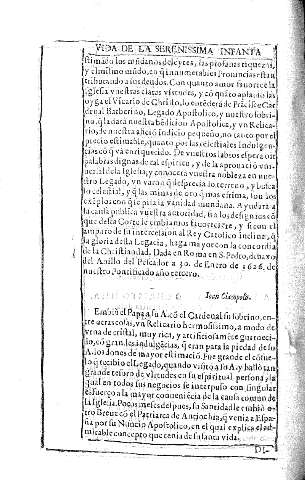 VIDA DE LA SERENISSIMA INFANTA
timado los mūdanos deleytes, las profanas riquezas,
y el mismo mūdo, en q̃ innumerables Prouincias estan
tributando a los deudos. Con quanto amor fauorece la
Iglesia y nuestras claras virtudes, y cō quāto aplauso las
oyga el Vicario de Christo, lo entēderá de Frācisco Car
denal Barberino, Legado Apostolico, y nuestro sobri-
no, q̃ la dará nuestra bēdicion Apostolica, y vn Relica-
rio, de nuestra afició indicio pequeño, no tanto por el
precio estimable, quanto por las celestiales Indulgen-
cias cō q̃ vá enriquecido. De nuestros labios espera oir
palabras dignas de tal espiritu, y de la aprouació vni-
uersal de la Iglesia, y conocerá vuestra nobleza en nues-
tro Legado, vn varon q̃ desprecia lo terreno, y busca
lo celestial, y q̃ las minas de oro q̃ mas estima, son los
exēplos con q̃ se pisa la vanidad mundana. Ayudará a
la causa publica vuestra autoridad,
el
amparo de su intercession al Rey Catolico incline, ó
la gloria de la Legacia, haga mayor con la concordia
de la Christiandad. Dada en Roma en S. Pedro, debaxo
del Anillo del Pescador a 30. de Enero de 1626. de
nuestro Pontificado año tercero.
Iuan Ciampolo.
Embió el Papa a su A. cō el Cardenal su sobrino, en-
tre otras cosas, vn Relicario hermosissimo, a modo de
vrna de cristal, muy rica, y artificiosamēte guarneci-
do, cō grandes indulgēcias, q̃ eran para la piedad de su
A. los dones de mayor estimació. Fue grande el cōsue-
lo q̃ recibio el Legado, quando visitó a su A. y halló tan
grande tesoro de virtudes en su espiritual persona, la
qual en todos sus negocios se interpuso con singular
esfuerço a la mayor conueniēcia de la causa comun de
la Iglesia. Pocos meses despues, su Santidad le embió o-
tro Breue cō el Patriarca de Antiochia, q̃ venia a Espa-
ña por su Nuncio Apostolico, en el qual explica el ad-
mirable concepto que tenia de su santa vida.
DI-